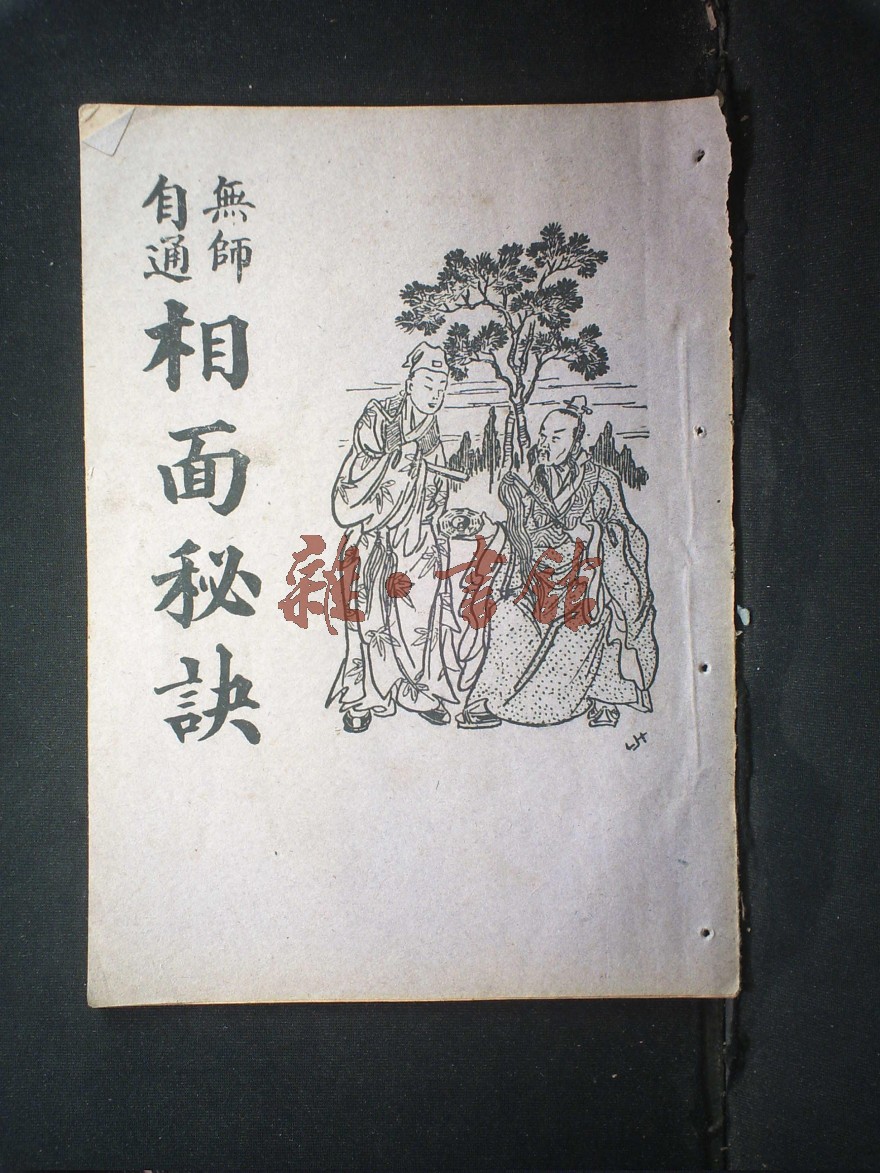 無師
自通
相面秘訣
雜·書館